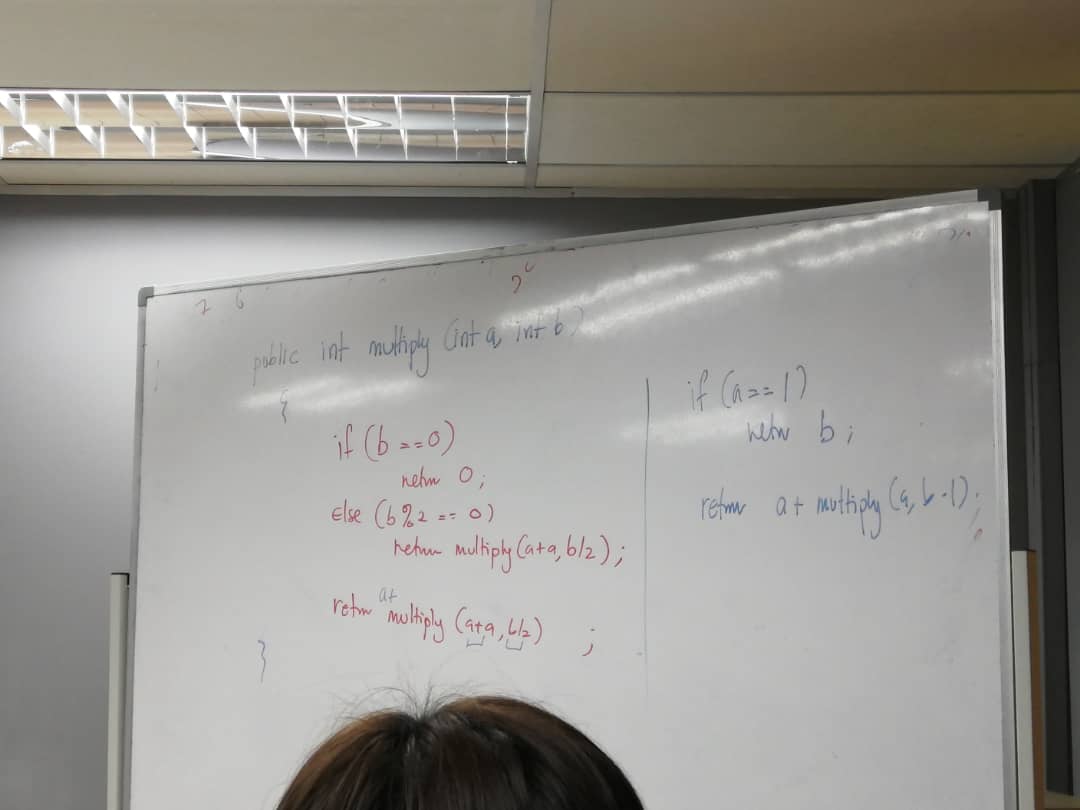 public int multiply (int a, int b)
{
if (b == 0)
return 0;
Else (b%2 == 0)
return multiply (a+a, b/2);
return a+ multiply (a+a, b/2) ;
}
if (a == 1)
return b;
return a + multiply (a, b-1);